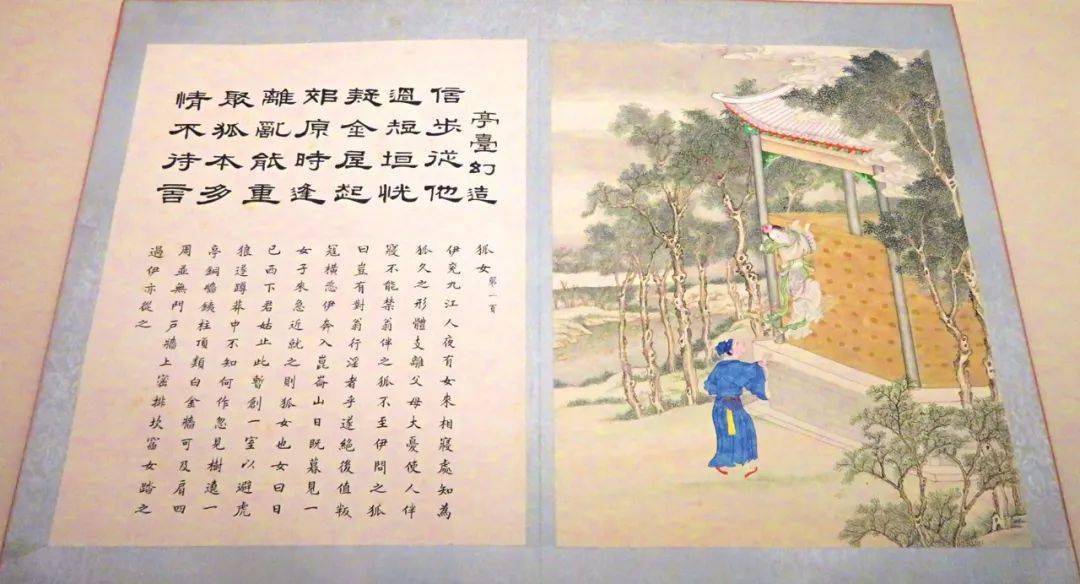 亭臺幻造
信步從他
過短垣恍
疑金屋起
郊原時逢
離亂能重
聚狐本多
情不待言
狐女 第一頁
伊兗九江人夜有女來相寢處知為
狐久之形體支離父母大憂使人伴
寢不能禁翁伴之狐不至伊問之狐
曰豈有對翁行淫者乎遂絕後值叛
寇橫恣伊奔入崑崙山日既暮見一
女子來急近就之則狐女也女曰日
已西下君姑止此暫創一室以避虎
狼遂蹲莽中不知何作忽見樹邊一
亭銅牆鐵柱頂類白金牆可及肩四
周並無門戶牆上密排坎窞女踏之
過伊亦從之